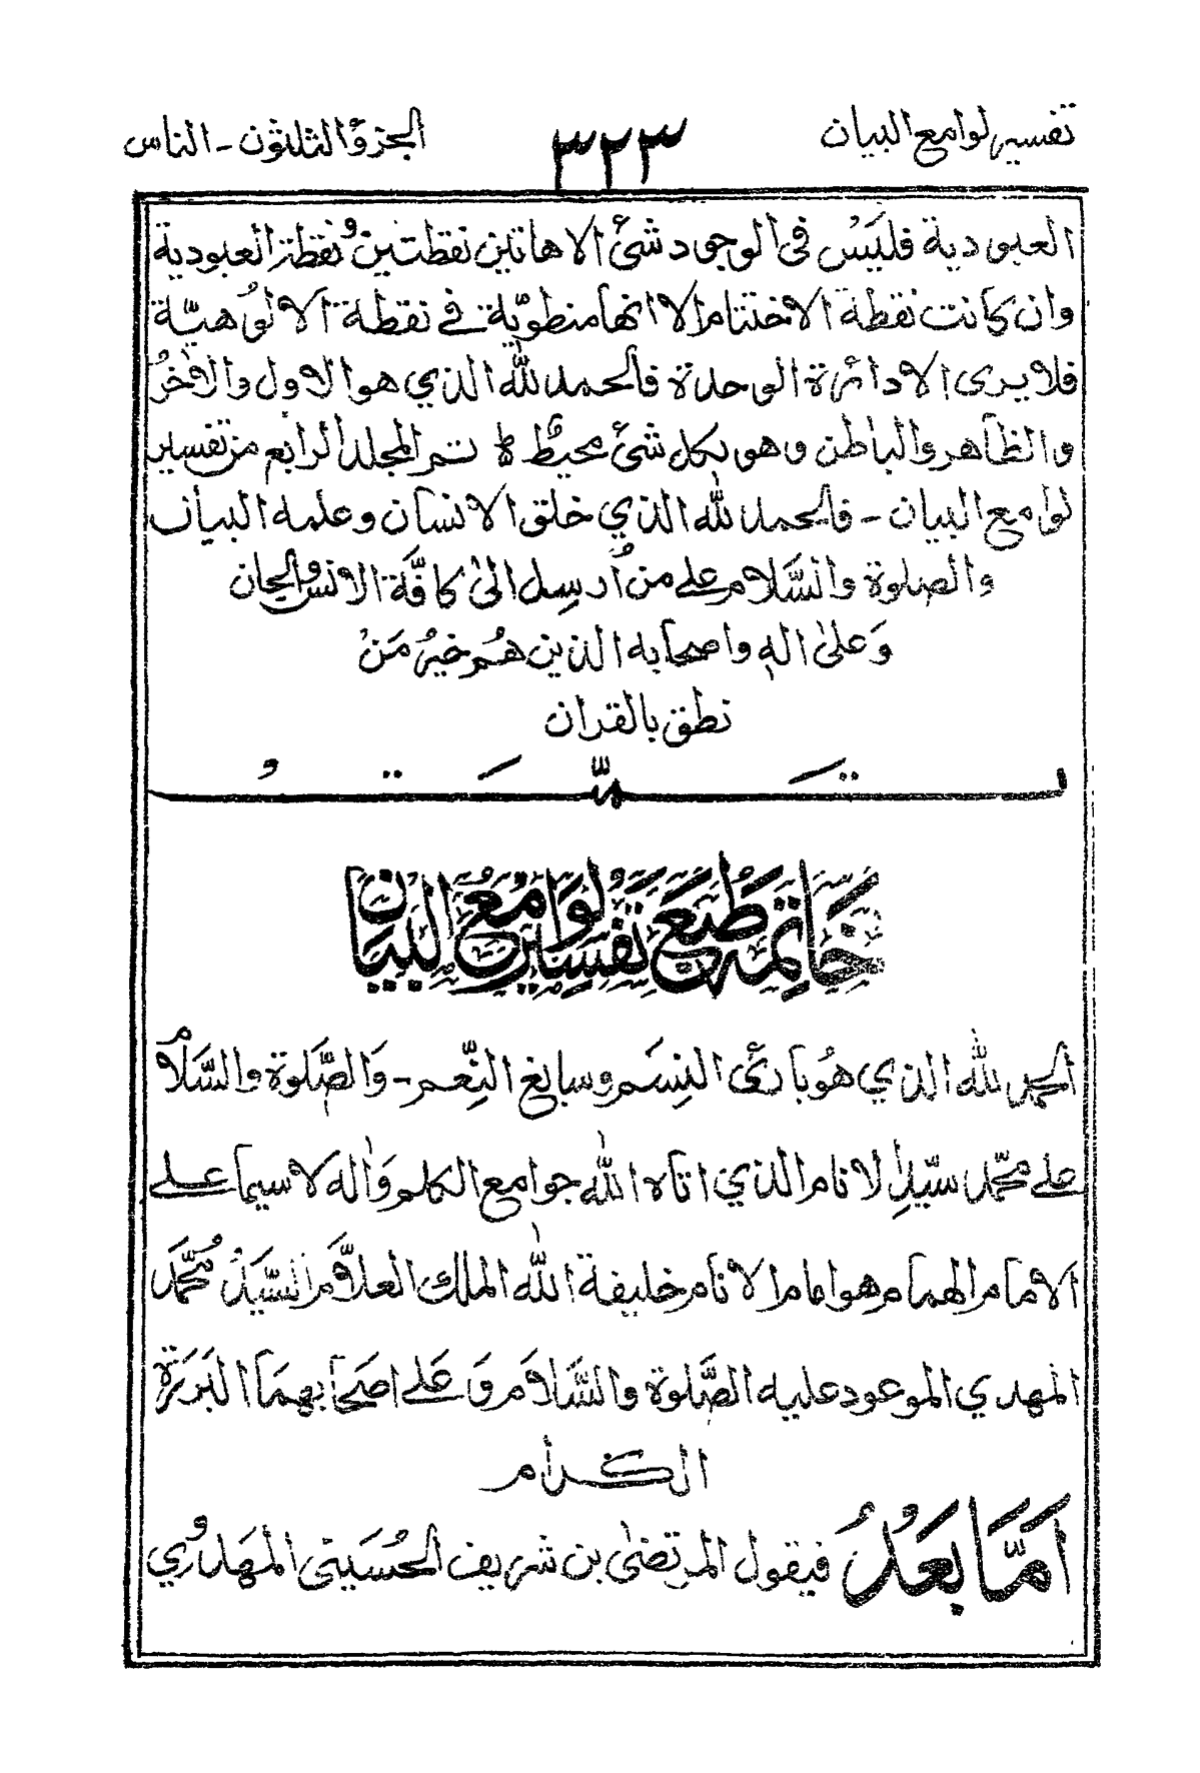 تفسير لوامع البيان
٣٢٣
الجزؤ الثلثون - الناس
العبودية فليَسُ فى الوجود شئ الا هاتين نقطتين و نقطة العبودية
وان كانت نقطة الاختتام الا انها منطويّة فے نقطة الالوُهيّة
فلا يرى الا دائرة الوحدة فالحمد لله الذي هو الاول والاٰخرُ
والظاهر والباطن وهو بكل شئ محيطٌ ط تم المجلد الرابع من تفسير
لوامع البيان - فالحمد لله الذي خلق الانسان وعلمه البيان
والصلوة والسَّلام علے من اُرسِل الىٰ كافَّة الانس والجان
وَعلىٰ اله واصحابه الذين هُم خيرُ مَنُ
نطق بالقران
تَمَّتُ
خَاتِمه طَبع تَفسِير لَوامُع البيَان
الحمد لله الذي هُو بارئ النِسَم وسابغ النِّعم - وَالصَّلوة والسَّلام
علے محمّد سيّد الانام الذي اتاه الله جوامع الكلم وَاٰله لاسيما علے
الامام الهمام هو امام الانام خليفة الله الملك العلاَّم السَّيّدُ مُحمَّد
المهدي الموعود عليه الصَّلوة والسَّلام وَ عَلے اصحابهما البَرَرَة
الكرام
اَمَّا بَعَدُ فيقول المرتضىٰ بن شريف الحُسَينى المهَدَوي